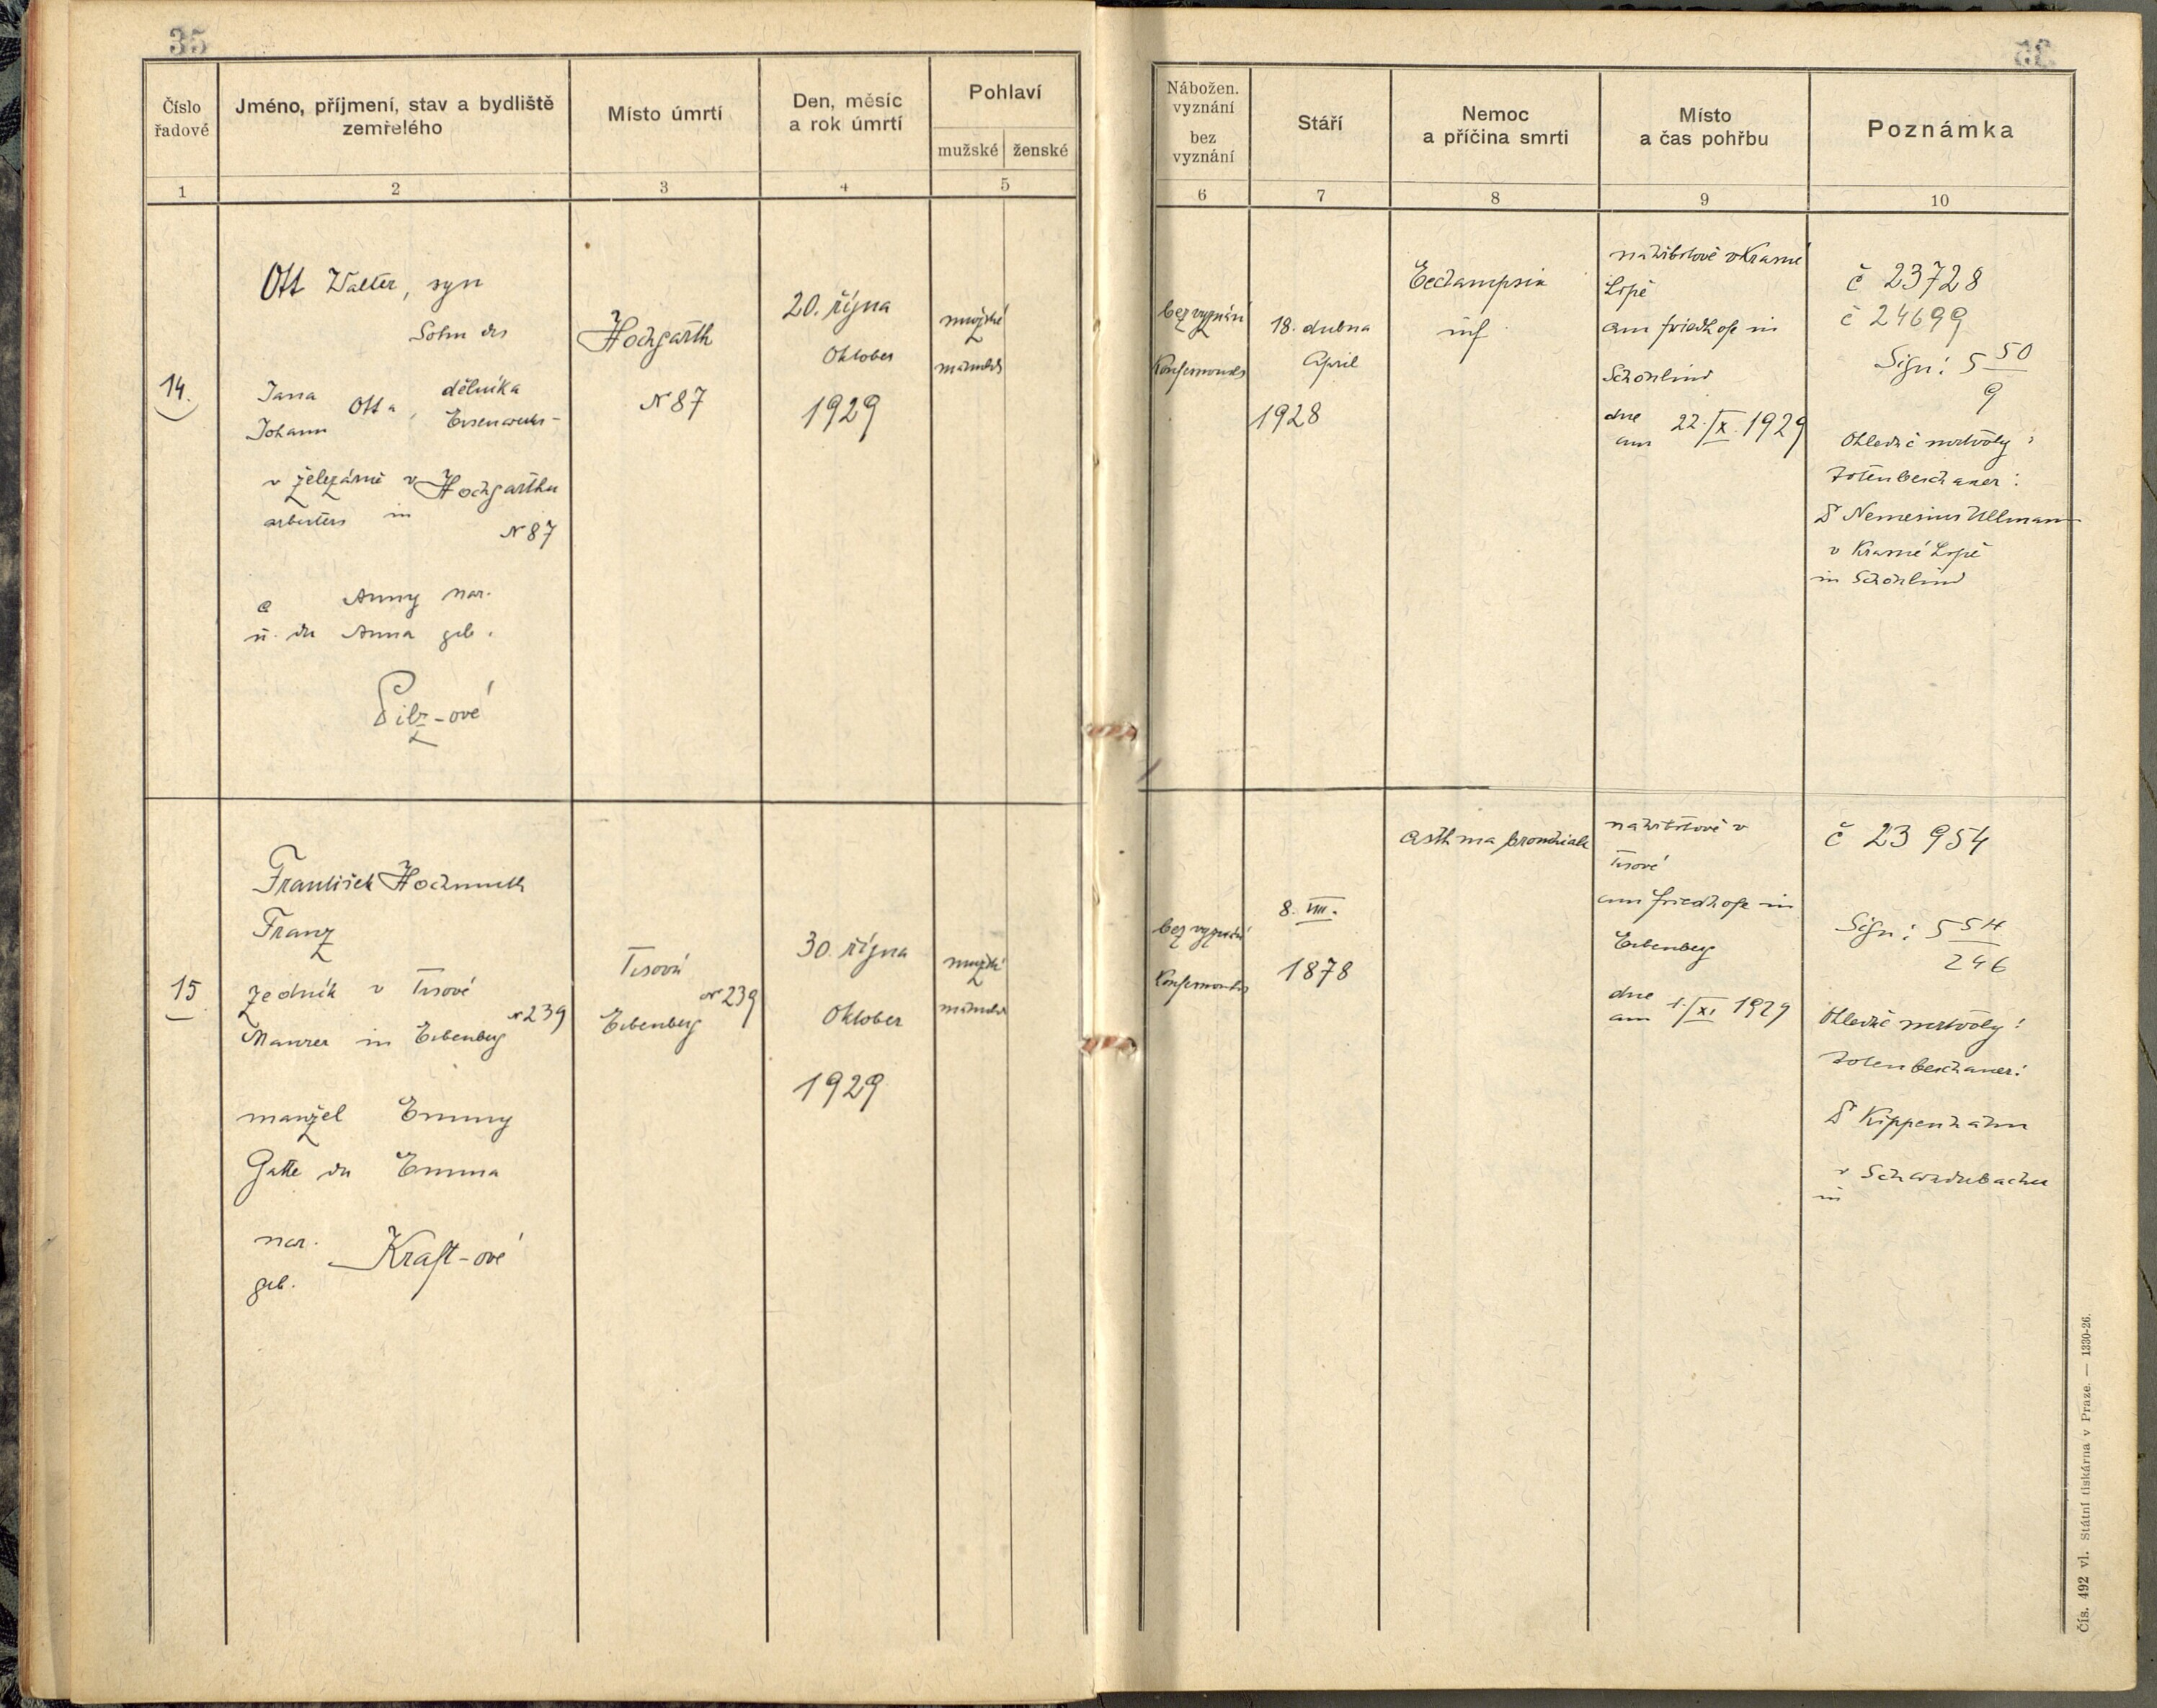 35
Číslo
řadové
Jméno, příjmení, stav a bydliště
zemřelého
Místo úmrtí
Den, měsíc
a rok úmrtí
Pohlaví
mužské ženské
1 2 3 4 5
14.
Ott Walter, syn
Sohn des
Jana
Johann
Otta,
dělníka
Eisenwerks-
v železárně v Hochgarthu
arbeiters in
N 87
a Anny nar.
u. der Anna geb.
Pilz-ové
Hochgarth
N 87
20. října
Oktober
1929
mužské
männlich
15
František Hochmuth
Franz
zedník v Tisové
Maurer in Eibenberg N 239
manžel Emmy
Gatte der Emma
nar.
geb.
Kraft-ové
Tisová
Eibenberg N 239
30. října
Oktober
1929
mužské
männlich
35
Nábožen.
vyznání
bez
vyznání
Stáří
Nemoc
a příčina smrti
Místo
a čas pohřbu
Poznámka
6 7 8 9 10
bez vyznání
Konfessionslos
18. dubna
April
1928
Eclampsia
inf
na hřbitově v Krásné
Lípě
am Friedhofe in
Schönlind
dne
am
22./X. 1929
č 23728
č 24699
Sign: 5 50
9
Ohledač mrtvoly:
Totenbeschauer:
Dr Nemesius Ullmann
v Krásné Lípě
in Schönlind
bez vyznání
Konfessionslos
8. VIII.
1878
Asthma bronchiale
na hřbitově v
Tisové
am Friedhofe in
Eibenberg
dne
am
1./XI. 1929
č 23954
Sign: 5 54
246
Ohledač mrtvoly:
Totenbeschauer:
Dr Kippenhahn
v
in
Čís. 492 vl. Státní tiskárna v Praze. — 1330-26.